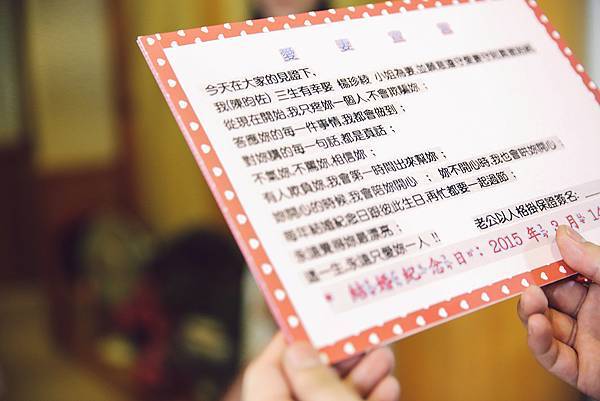 愛妻宣言
今天在大家的見證下，
我(陳昀佐) 三生有幸娶 楊珍綾 小姐為妻,並願意遵守
從現在開始,我只疼妳一個人不會欺騙妳；
答應妳的每一件事情,我都會做到；
對妳講的每一句話,都是真話；
不氣妳,不罵妳,相信妳；
有人欺負妳,我會第一時間出來幫妳；
妳開心的時候,我會陪妳開心 ； 妳不開心時,我也會哄妳開心
每年結婚紀念日跟彼此生日,再忙都要一起過節；
永遠覺得妳最漂亮；
這一生,永遠只愛妳一人 !!
老公以人格掛保證簽名：
結婚紀念日：2015 年 3 月 14